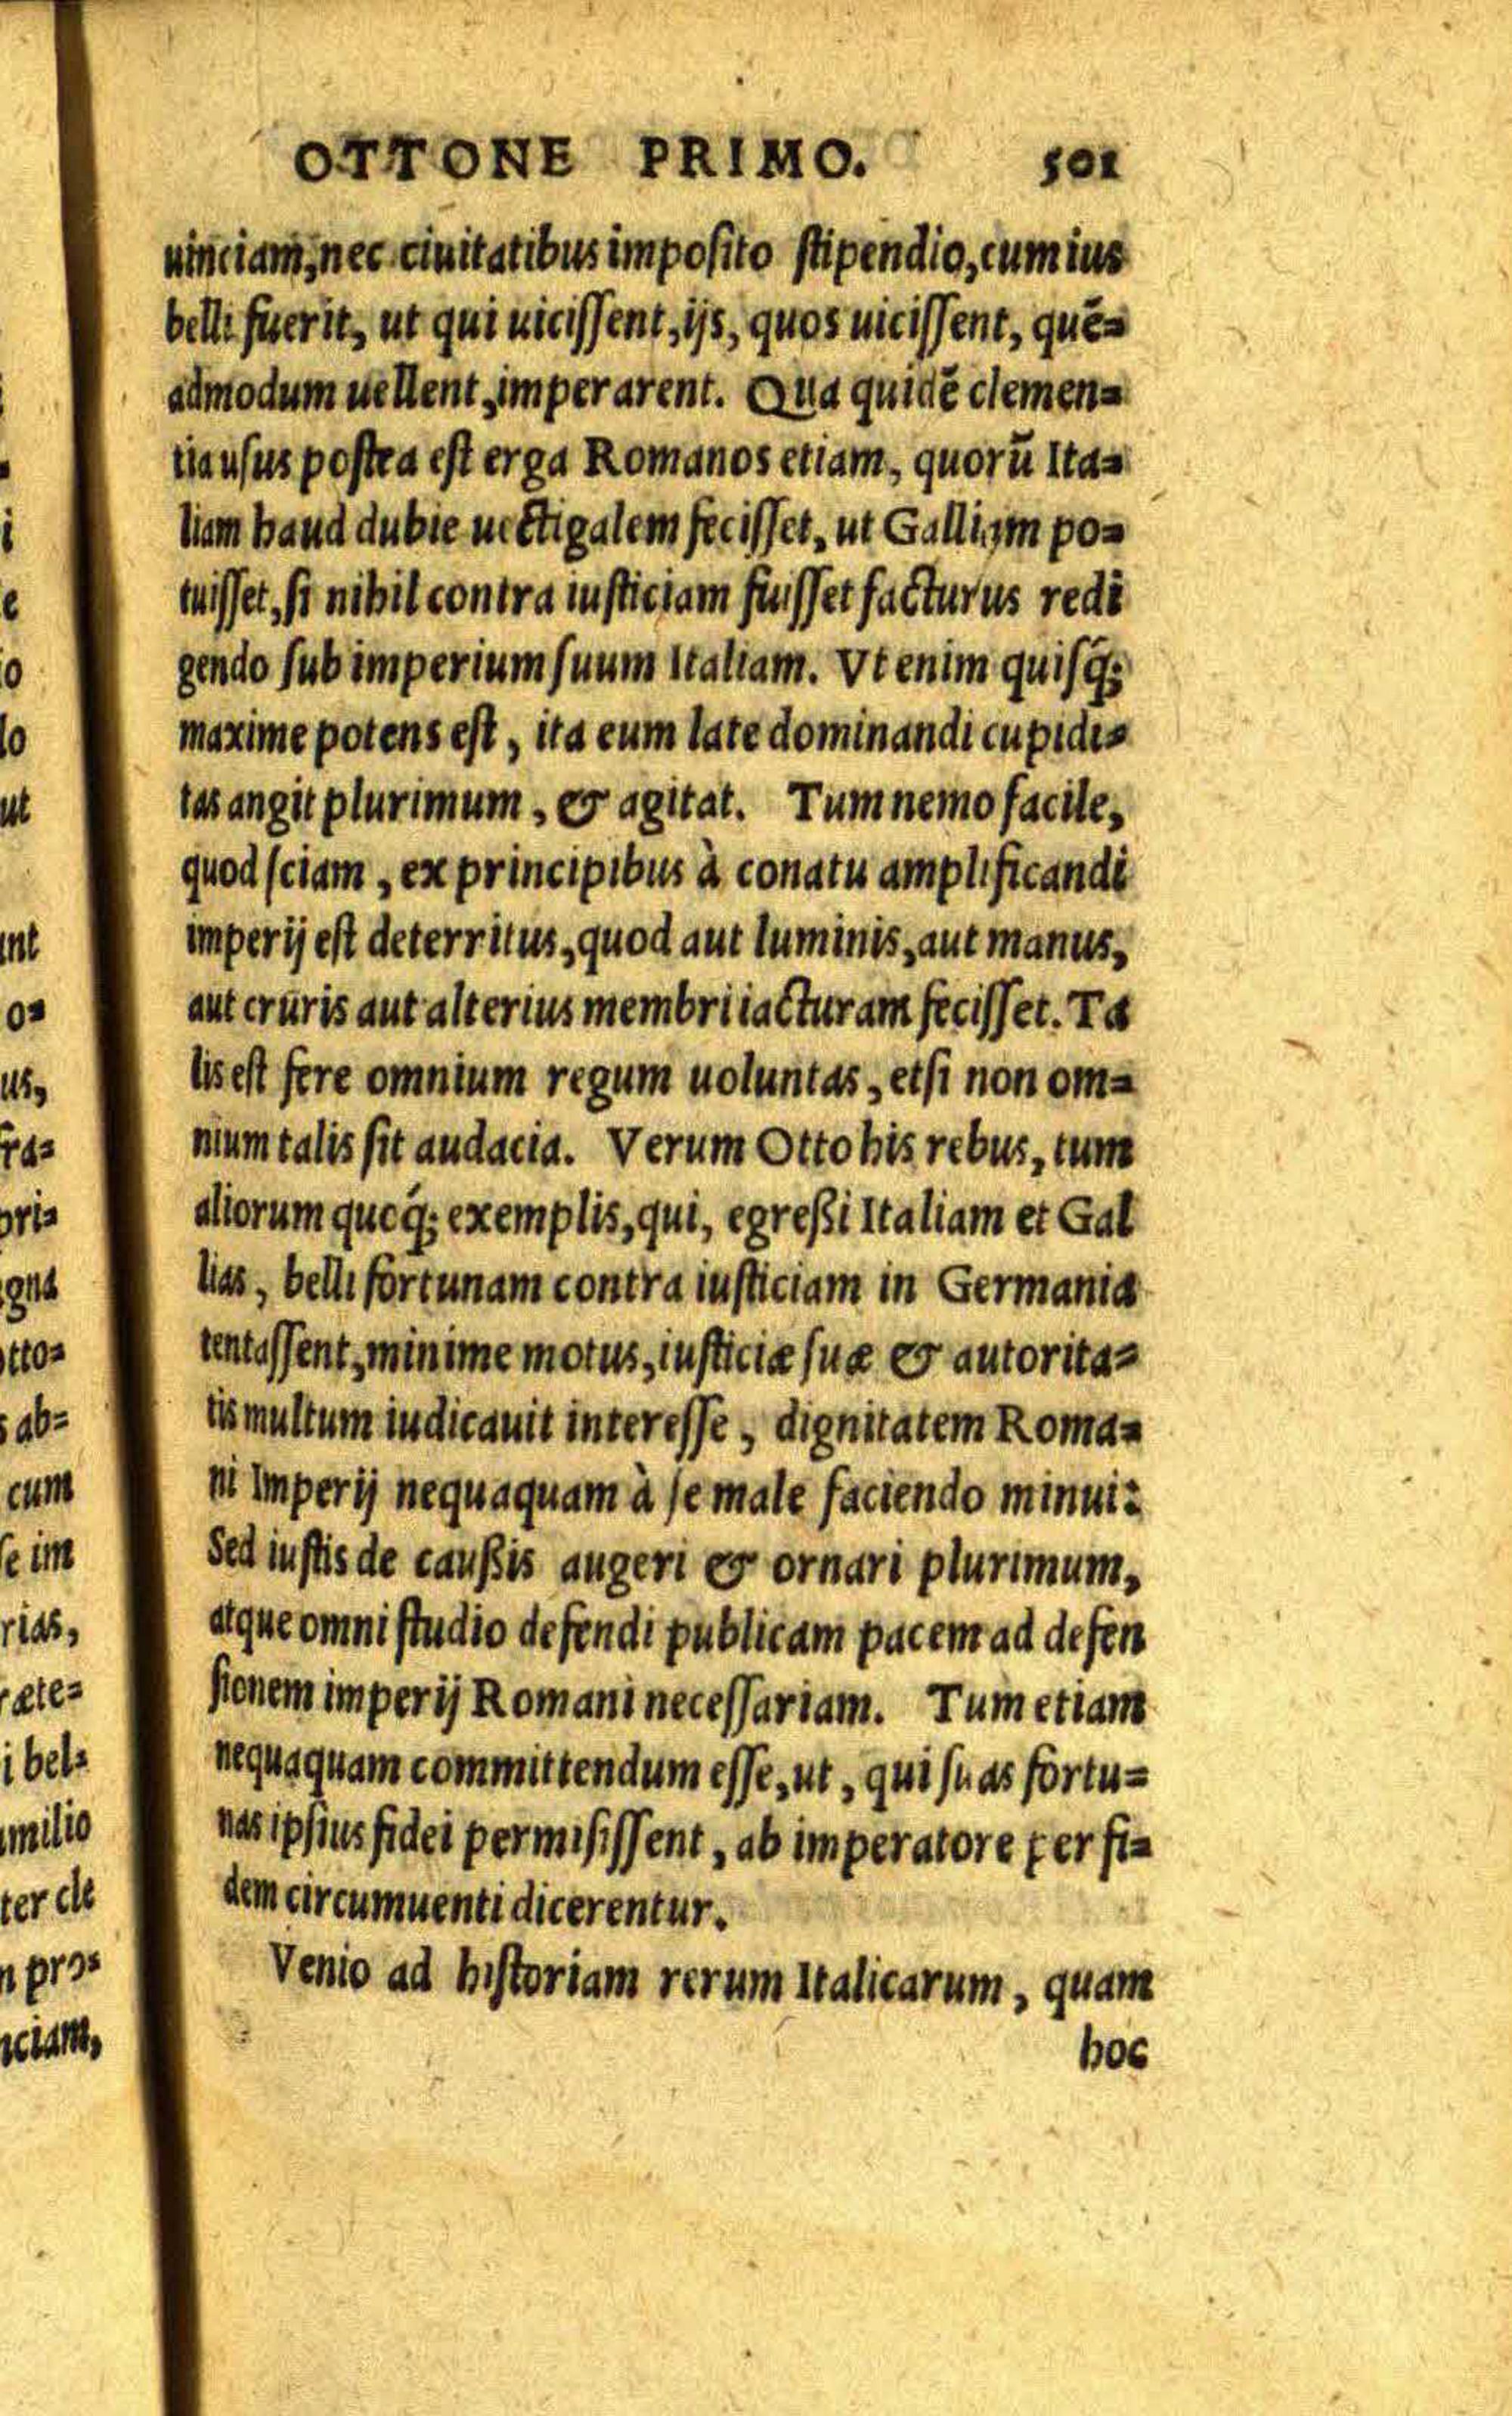 OTTONE PRIMO. 501
uinciam, nec ciuitatibus imposito stipendio, cum ius
belli fuerit, ut qui uicissent, ijs, quos uicissent, quē=
admodum uellent, imperarent. Qua quidē clemen=
tia usus postea est erga Romanos etiam, quorū Ita=
liam haud dubie uectigalem fecisset, ut Galliam po=
tuisset, si nihil contra iusticiam fuisset facturus redi
gendo sub imperium suum Italiam. Vt enim quisq́;
maxime potens est, ita eum late dominandi cupidi=
tas angit plurimum, & agitat. Tum nemo facile,
quod sciam, ex principibus à conatu amplificandi
imperij est deterritus, quod aut luminis, aut manus,
aut cruris aut alterius membri iacturam fecisset. Ta
lis est fere omnium regum uoluntas, etsi non om=
nium talis sit audacia. Verum Otto his rebus, tum
aliorum quoq́; exemplis, qui, egreßi Italiam et Gal
lias, belli fortunam contra iusticiam in Germania
tentassent, minime motus, iusticiæ suæ & autorita=
tis multum iudicauit interesse, dignitatem Roma=
ni Imperij nequaquam à se male faciendo minui:
Sed iustis de caußis augeri & ornari plurimum,
atque omni studio defendi publicam pacem ad defen
sionem imperij Romani necessariam. Tum etiam
nequaquam committendum esse, ut, qui suas fortu=
nas ipsius fidei permisissent, ab imperatore per fi=
dem circumuenti dicerentur.
Venio ad historiam rerum Italicarum, quam
hoc